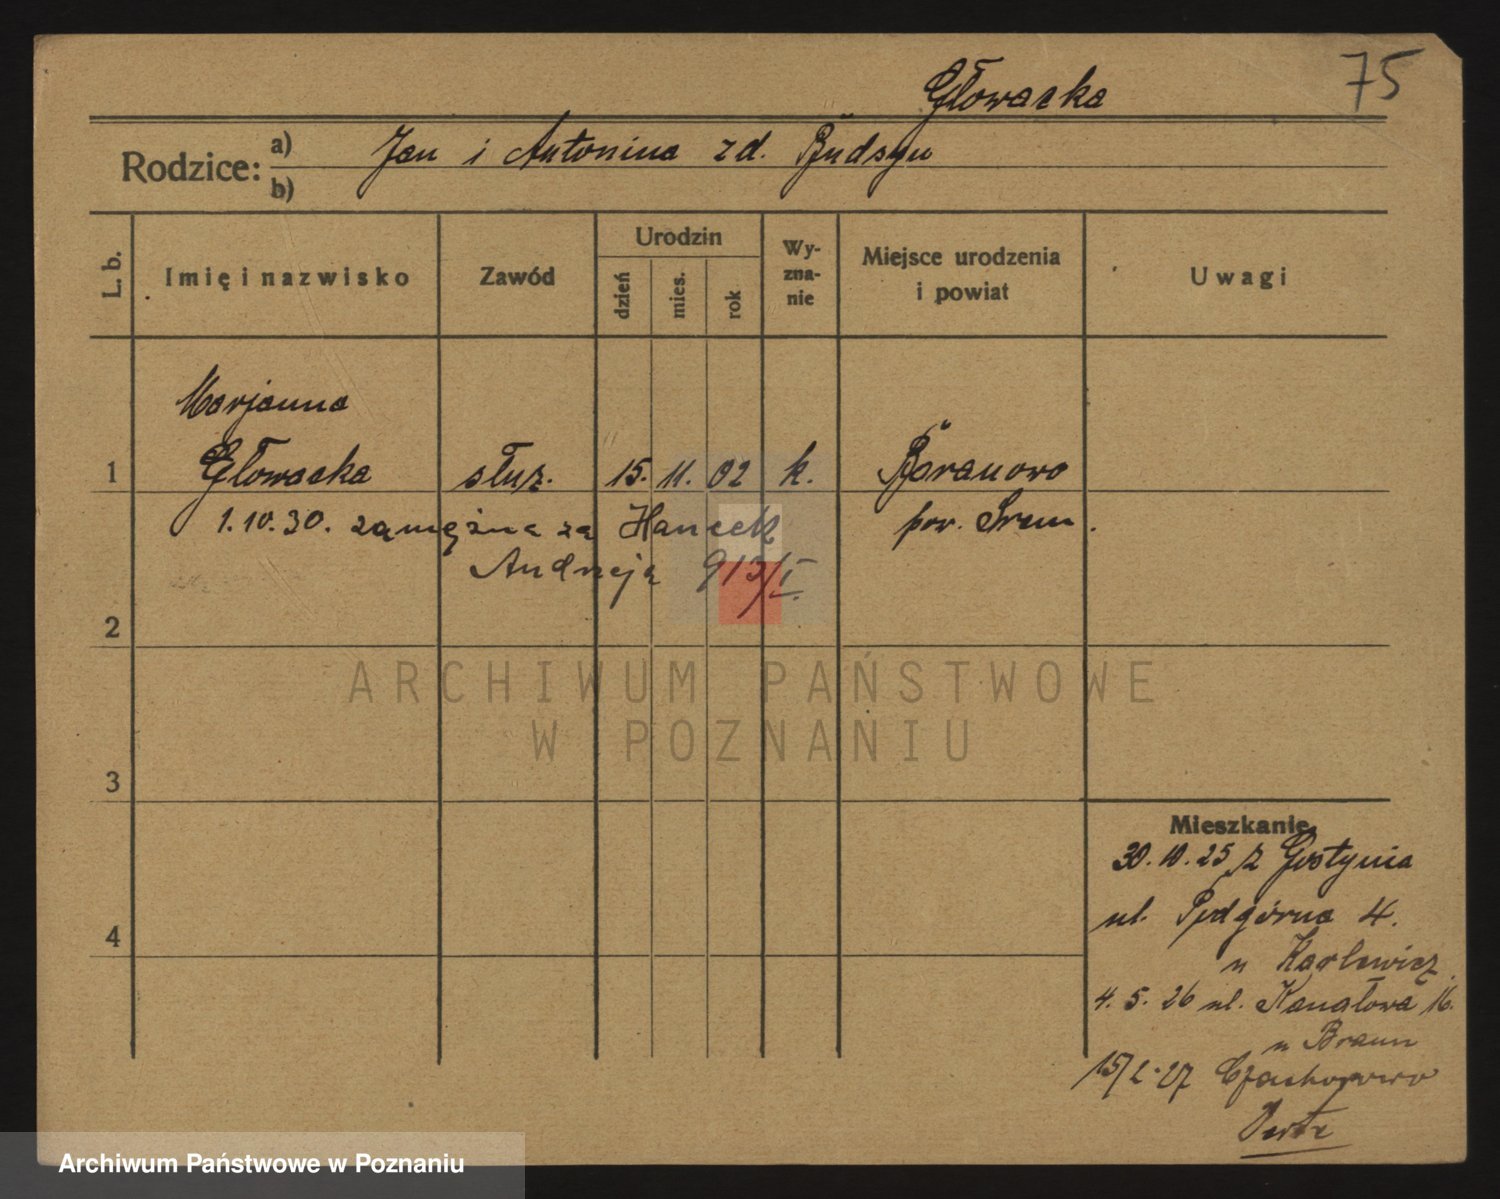 75
Głowacka
Rodzice: a) Jan i Antonina zd. Budzyn
b)
L. b. Imię i nazwisko Zawód Urodzin dzień mies. rok Wyznanie Miejsce urodzenia i powiat Uwagi
Marjanna
1 Głowacka służ. 15. 11. 02 k. Baranowo
1.10.30. zamężna za Hancek pow. Śrem.
Andrzeja 913/I.
2
3
4
Mieszkanie
30.10.25 z Gostynia
ul. Podgórna 4.
u Karlewicz
4.5.26 ul. Kanałowa 16.
u Braun
15/2.27 Czachorowo
ARCHIWUM PAŃSTWOWE
W POZNANIU
Archiwum Państwowe w Poznaniu